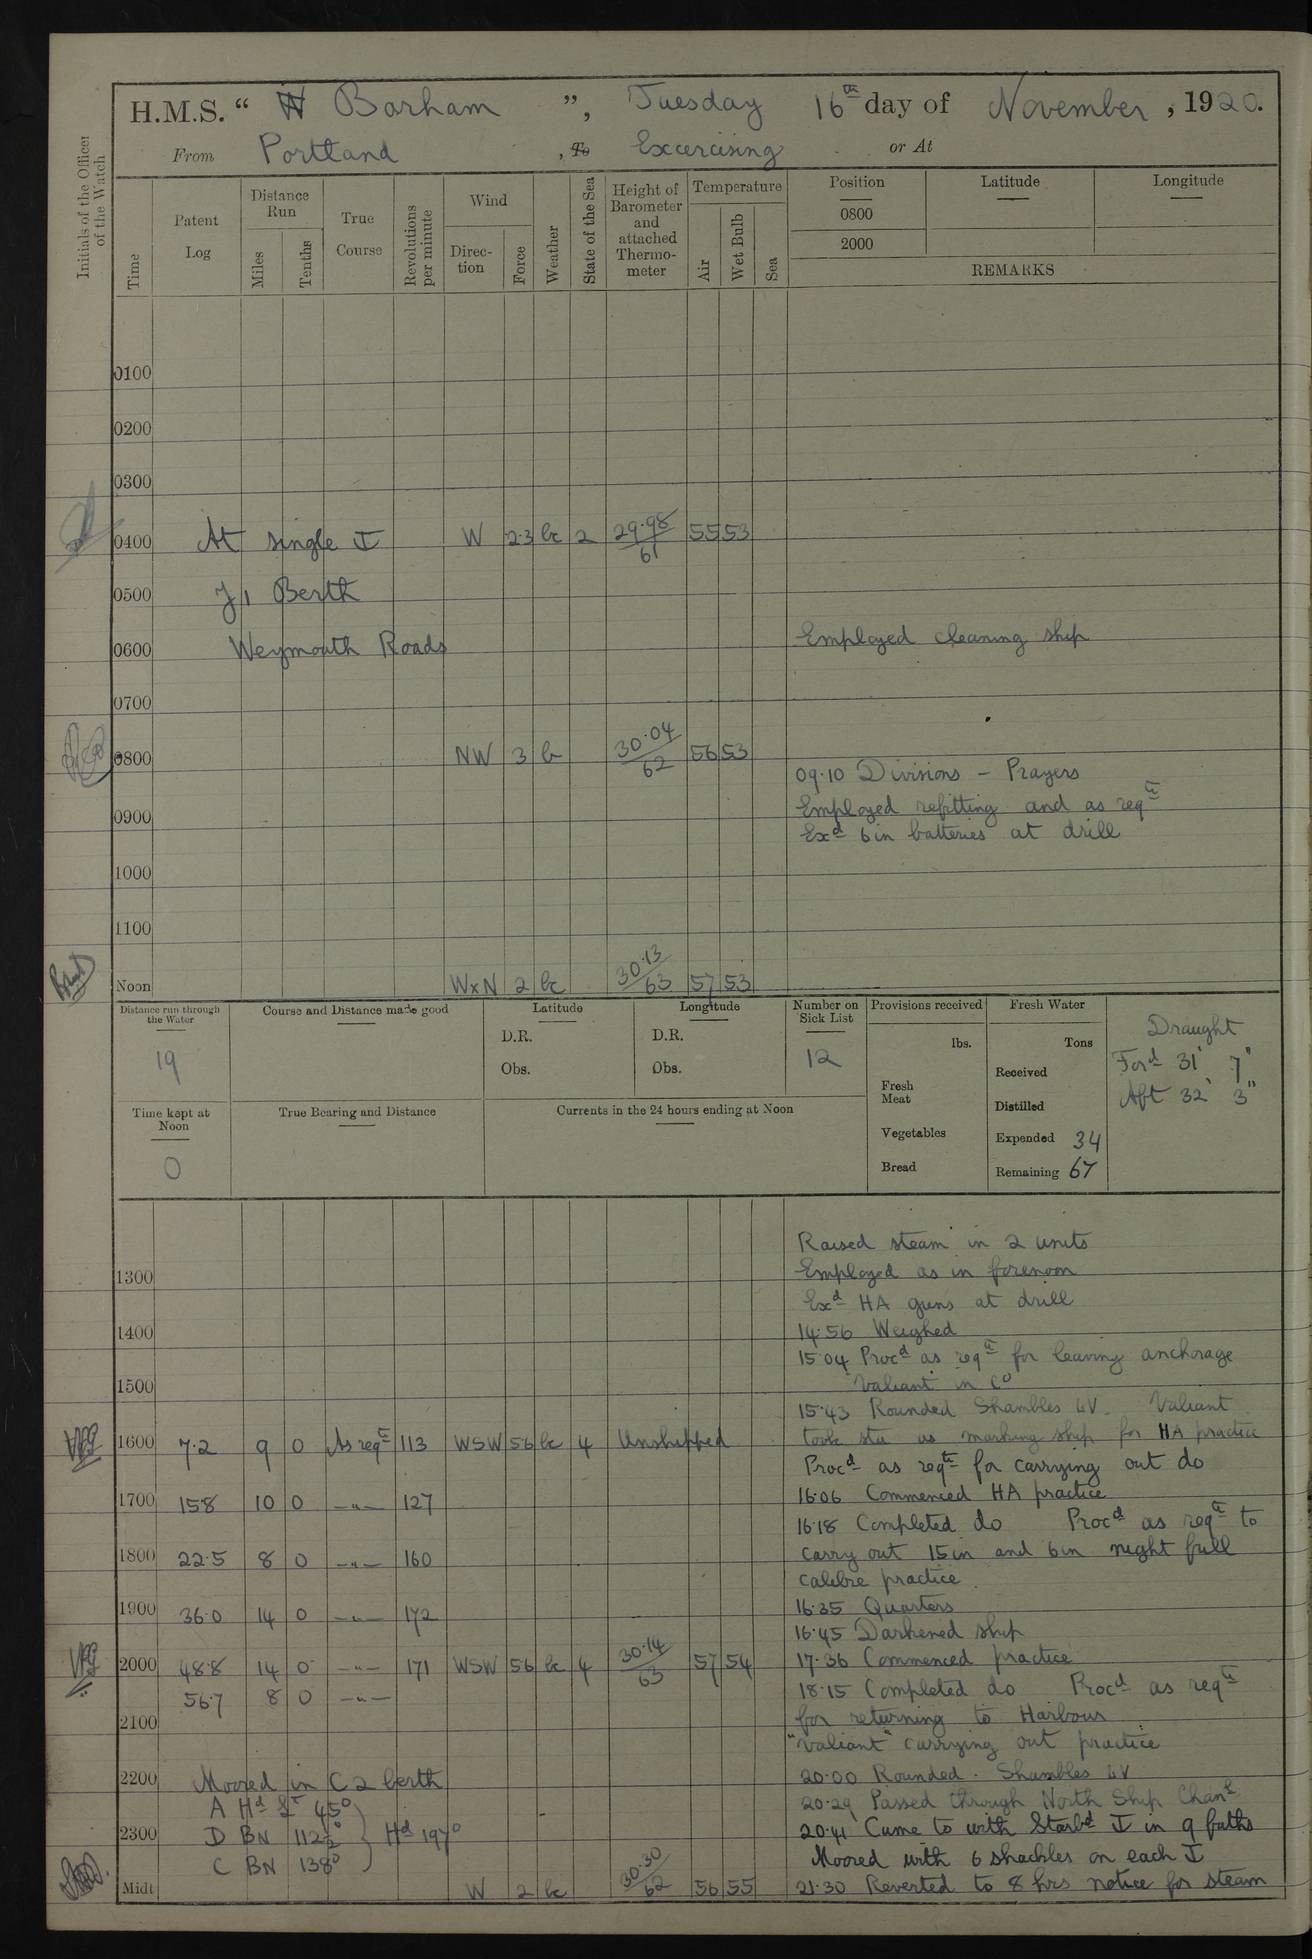 H.M.S. " Barham ", Tuesday 16th day of November, 1920.
From Portland, To Excercising or At
Initials of the Officer of the Watch
Time
Patent Log
Distance Run
Miles
Tenths
True Course
Revolutions per minute
Wind
Direction
Force
Weather
State of the Sea
Height of Barometer and attached Thermometer
Temperature
Air
Wet Bulb
Sea
Position Latitude Longitude
0800
2000
REMARKS
0100
0200
0300
0400 At single W 2.3 bc 2 29.98/61 55 53
0500 J1 Berth
0600 Weymouth Roads Employed cleaning ship
0700
0800 NW 3 b 30.04/62 56 53
09.10 Divisions - Prayers
0900 Employed refitting and as reqte
Exd 6in batteries at drill
1000
1100
Noon WxN 2 bc 30.13/63 57 53
Distance run through the Water
19
Course and Distance made good
Latitude
D.R.
Obs.
Longitude
D.R.
Obs.
Number on Sick List
12
Provisions received
lbs.
Fresh Meat
Vegetables
Bread
Fresh Water
Tons
Received
Distilled
Expended 34
Remaining 67
Draught
Ford 31' 7"
Aft 32' 3"
Time kept at Noon
0
True Bearing and Distance
Currents in the 24 hours ending at Noon
Raised steam in 2 units
1300 Employed as in forenoon
Exd HA guns at drill
1400 14.56 Weighed
15.04 Procd as reqte for leaving anchorage
1500 Valiant in Co
15.43 Rounded Shambles LV. Valiant
1600 7.2 9 0 As reqte 113 WSW 56 bc 4 Unshipped took sta as marking ship for HA practice
Procd as reqte for carrying out do
1700 158 10 0 -"- 127 16.06 Commenced HA practice
16.18 Completed do Procd as reqte to
1800 22.5 8 0 -"- 160 carry out 15in and 6in night full
calibre practice
1900 36.0 14 0 -"- 172 16.35 Quarters
16.45 Darkened ship
2000 48.8 14 0 -"- 171 WSW 56 bc 4 30.14/63 57 54 17.36 Commenced practice
56.7 8 0 -"- 18.15 Completed do Procd as reqte
2100 for returning to Harbour
"Valiant" carrying out practice
2200 Moored in C2 berth 20.00 Rounded. Shambles LV
A Hd Lt 45° 20.29 Passed through North Ship Chanl
2300 D BN 112½° Hd 197° 20.41 Came to with Starbd in 9 faths
C BN 138° Moored with 6 shackles on each
Midt W 2 bc 30.30/62 56 55 21.30 Reverted to 8 hrs notice for steam